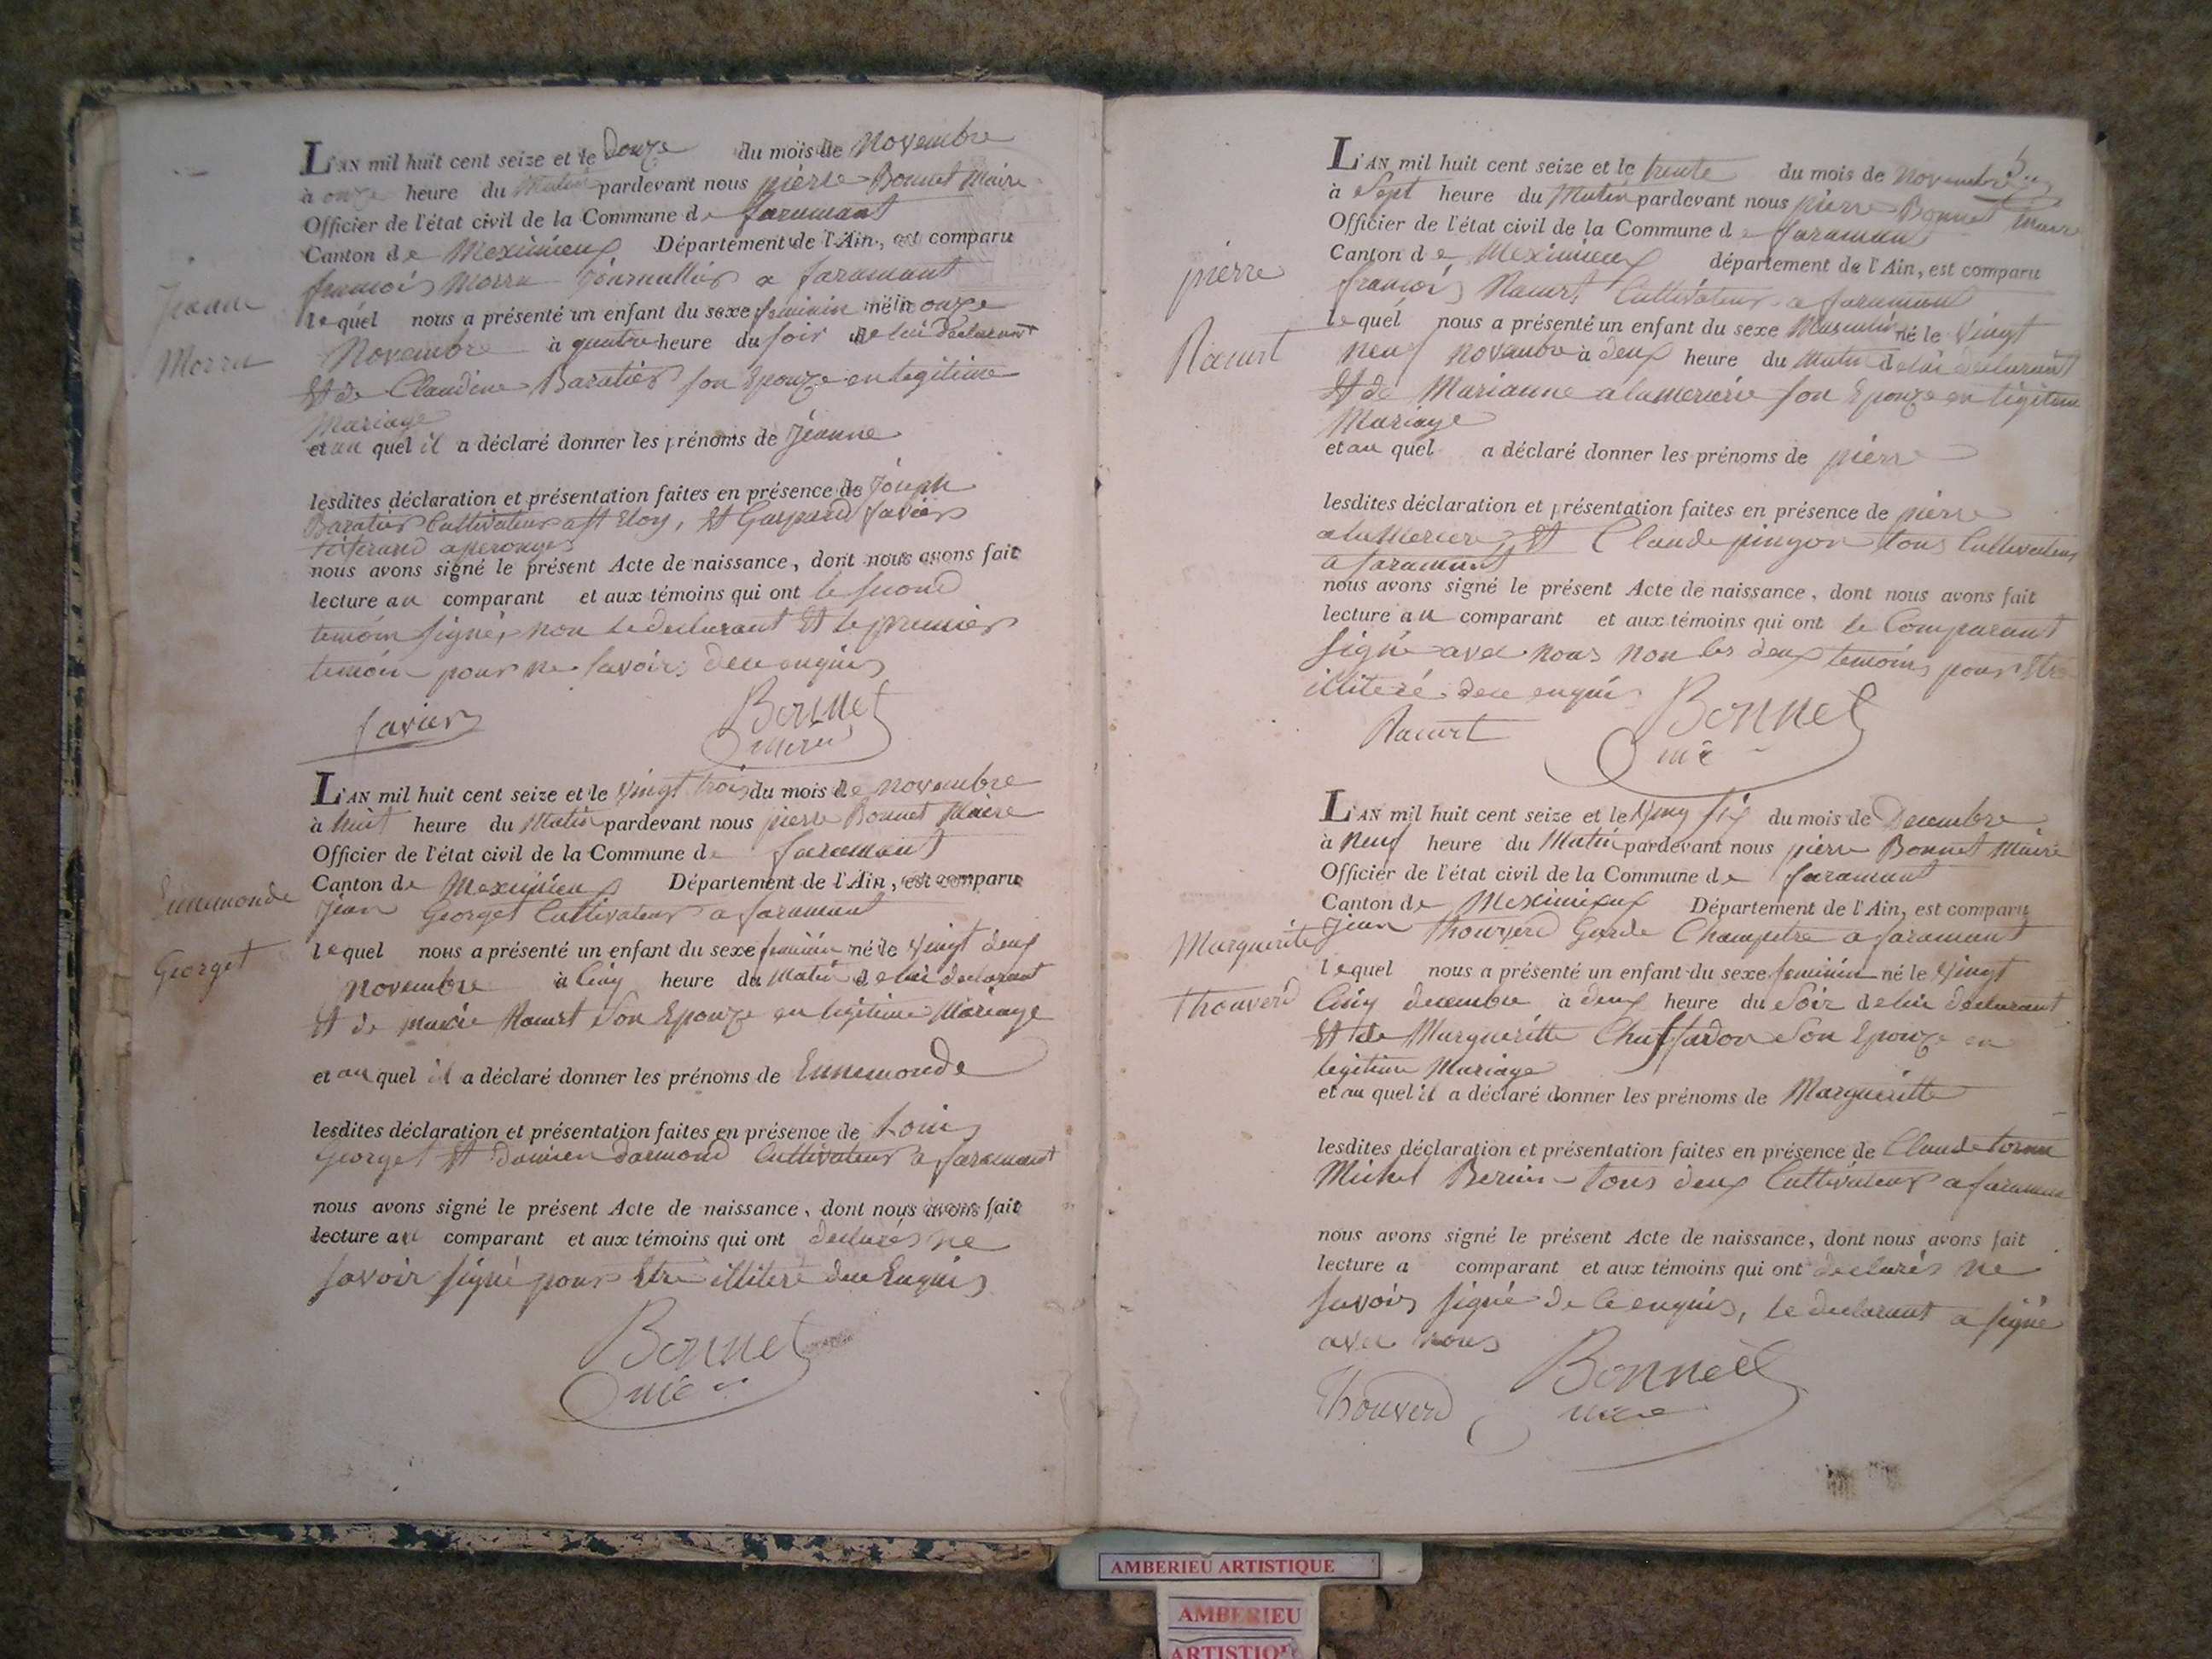 L'AN mil huit cent seize et le Douze du mois de Novembre
à onze heure du Matin pardevant nous pierre Bonnet Maire
Officier de l'état civil de la Commune de faramant
Canton de Meximieux Département de l'Ain, est comparu
françois Morra Journallier a faramant
lequel nous a présenté un enfant du sexe feminin né le onze
Novembre à quatre heure du soir de lui declarant
Et de Claudine Baratier son Epouze en legitime
Mariage
et au quel il a déclaré donner les prénoms de Jeanne
lesdites déclaration et présentation faites en présence de Joseph
Baratier Cultivateur a St Eloy, Et Gaspard favier
tisserand a perouges
nous avons signé le présent Acte de naissance, dont nous avons fait
lecture au comparant et aux témoins qui ont le second
temoin signé, non le declarant Et le premier
temoin pour ne savoir de ce enquis
favier
Bonnet
maire
Jeanne
Morra
L'AN mil huit cent seize et le Vingt trois du mois de novembre
à huit heure du Matin pardevant nous pierre Bonnet Maire
Officier de l'état civil de la Commune de faramant
Canton de Meximieux Département de l'Ain, est comparu
Jean Georget Cultivateur a faramant
lequel nous a présenté un enfant du sexe feminin né le Vingt deux
novembre à Cinq heure du Matin de lui declarant
Et de marie Racurt Son Epouze en legitime Mariage
et au quel il a déclaré donner les prénoms de Ennemonde
lesdites déclaration et présentation faites en présence de Louis
Georget Et Damien Darmond Cultivateur a faramant
nous avons signé le présent Acte de naissance, dont nous avons fait
lecture au comparant et aux témoins qui ont declarés ne
savoir signé pour Etre illiteré de ce Enquis
Bonnet
Ennemonde
Georget
L'AN mil huit cent seize et le trente du mois de Novembre
à Sept heure du Matin pardevant nous pierre Bonnet Maire
Officier de l'état civil de la Commune de faramant
Canton de Meximieux département de l'Ain, est comparu
françois Racurt Cultivateur a faramant
lequel nous a présenté un enfant du sexe Masculin né le Vingt
neuf novembre à deux heure du Matin de lui declarant
Et de Marianne alamercerie son Epouze en legitime
Mariage
et au quel a déclaré donner les prénoms de pierre
lesdites déclaration et présentation faites en présence de pierre
Et Claude pingon tous Cultivateur
a faramant
nous avons signé le présent Acte de naissance, dont nous avons fait
lecture au comparant et aux témoins qui ont le Comparant
signé avec nous non les deux temoins pour Etre
illiteré de ce enquis
Racurt
Bonnet
pierre
Racurt
L'AN mil huit cent seize et le Vingt six du mois de Decembre
à Neuf heure du Matin pardevant nous pierre Bonnet Maire
Officier de l'état civil de la Commune de faramant
Canton de Meximieux Département de l'Ain, est comparu
Jean Thouverd Garde Champetre a faramant
lequel nous a présenté un enfant du sexe feminin né le Vingt
Cinq decembre à deux heure du Soir de lui declarant
Et de Margueritte Chaffardon Son Epouze en
legitime Mariage
et au quel il a déclaré donner les prénoms de Margueritte
lesdites déclaration et présentation faites en présence de Claude
Michel tous deux Cultivateur a faramant
nous avons signé le présent Acte de naissance, dont nous avons fait
lecture a comparant et aux témoins qui ont declarés ne
savoir signé de ce enquis, le declarant a signé
avec nous
Thouverd
Bonnet
maire
Marguerite
Thouverd
AMBERIEU ARTISTIQUE
AMBERIEU